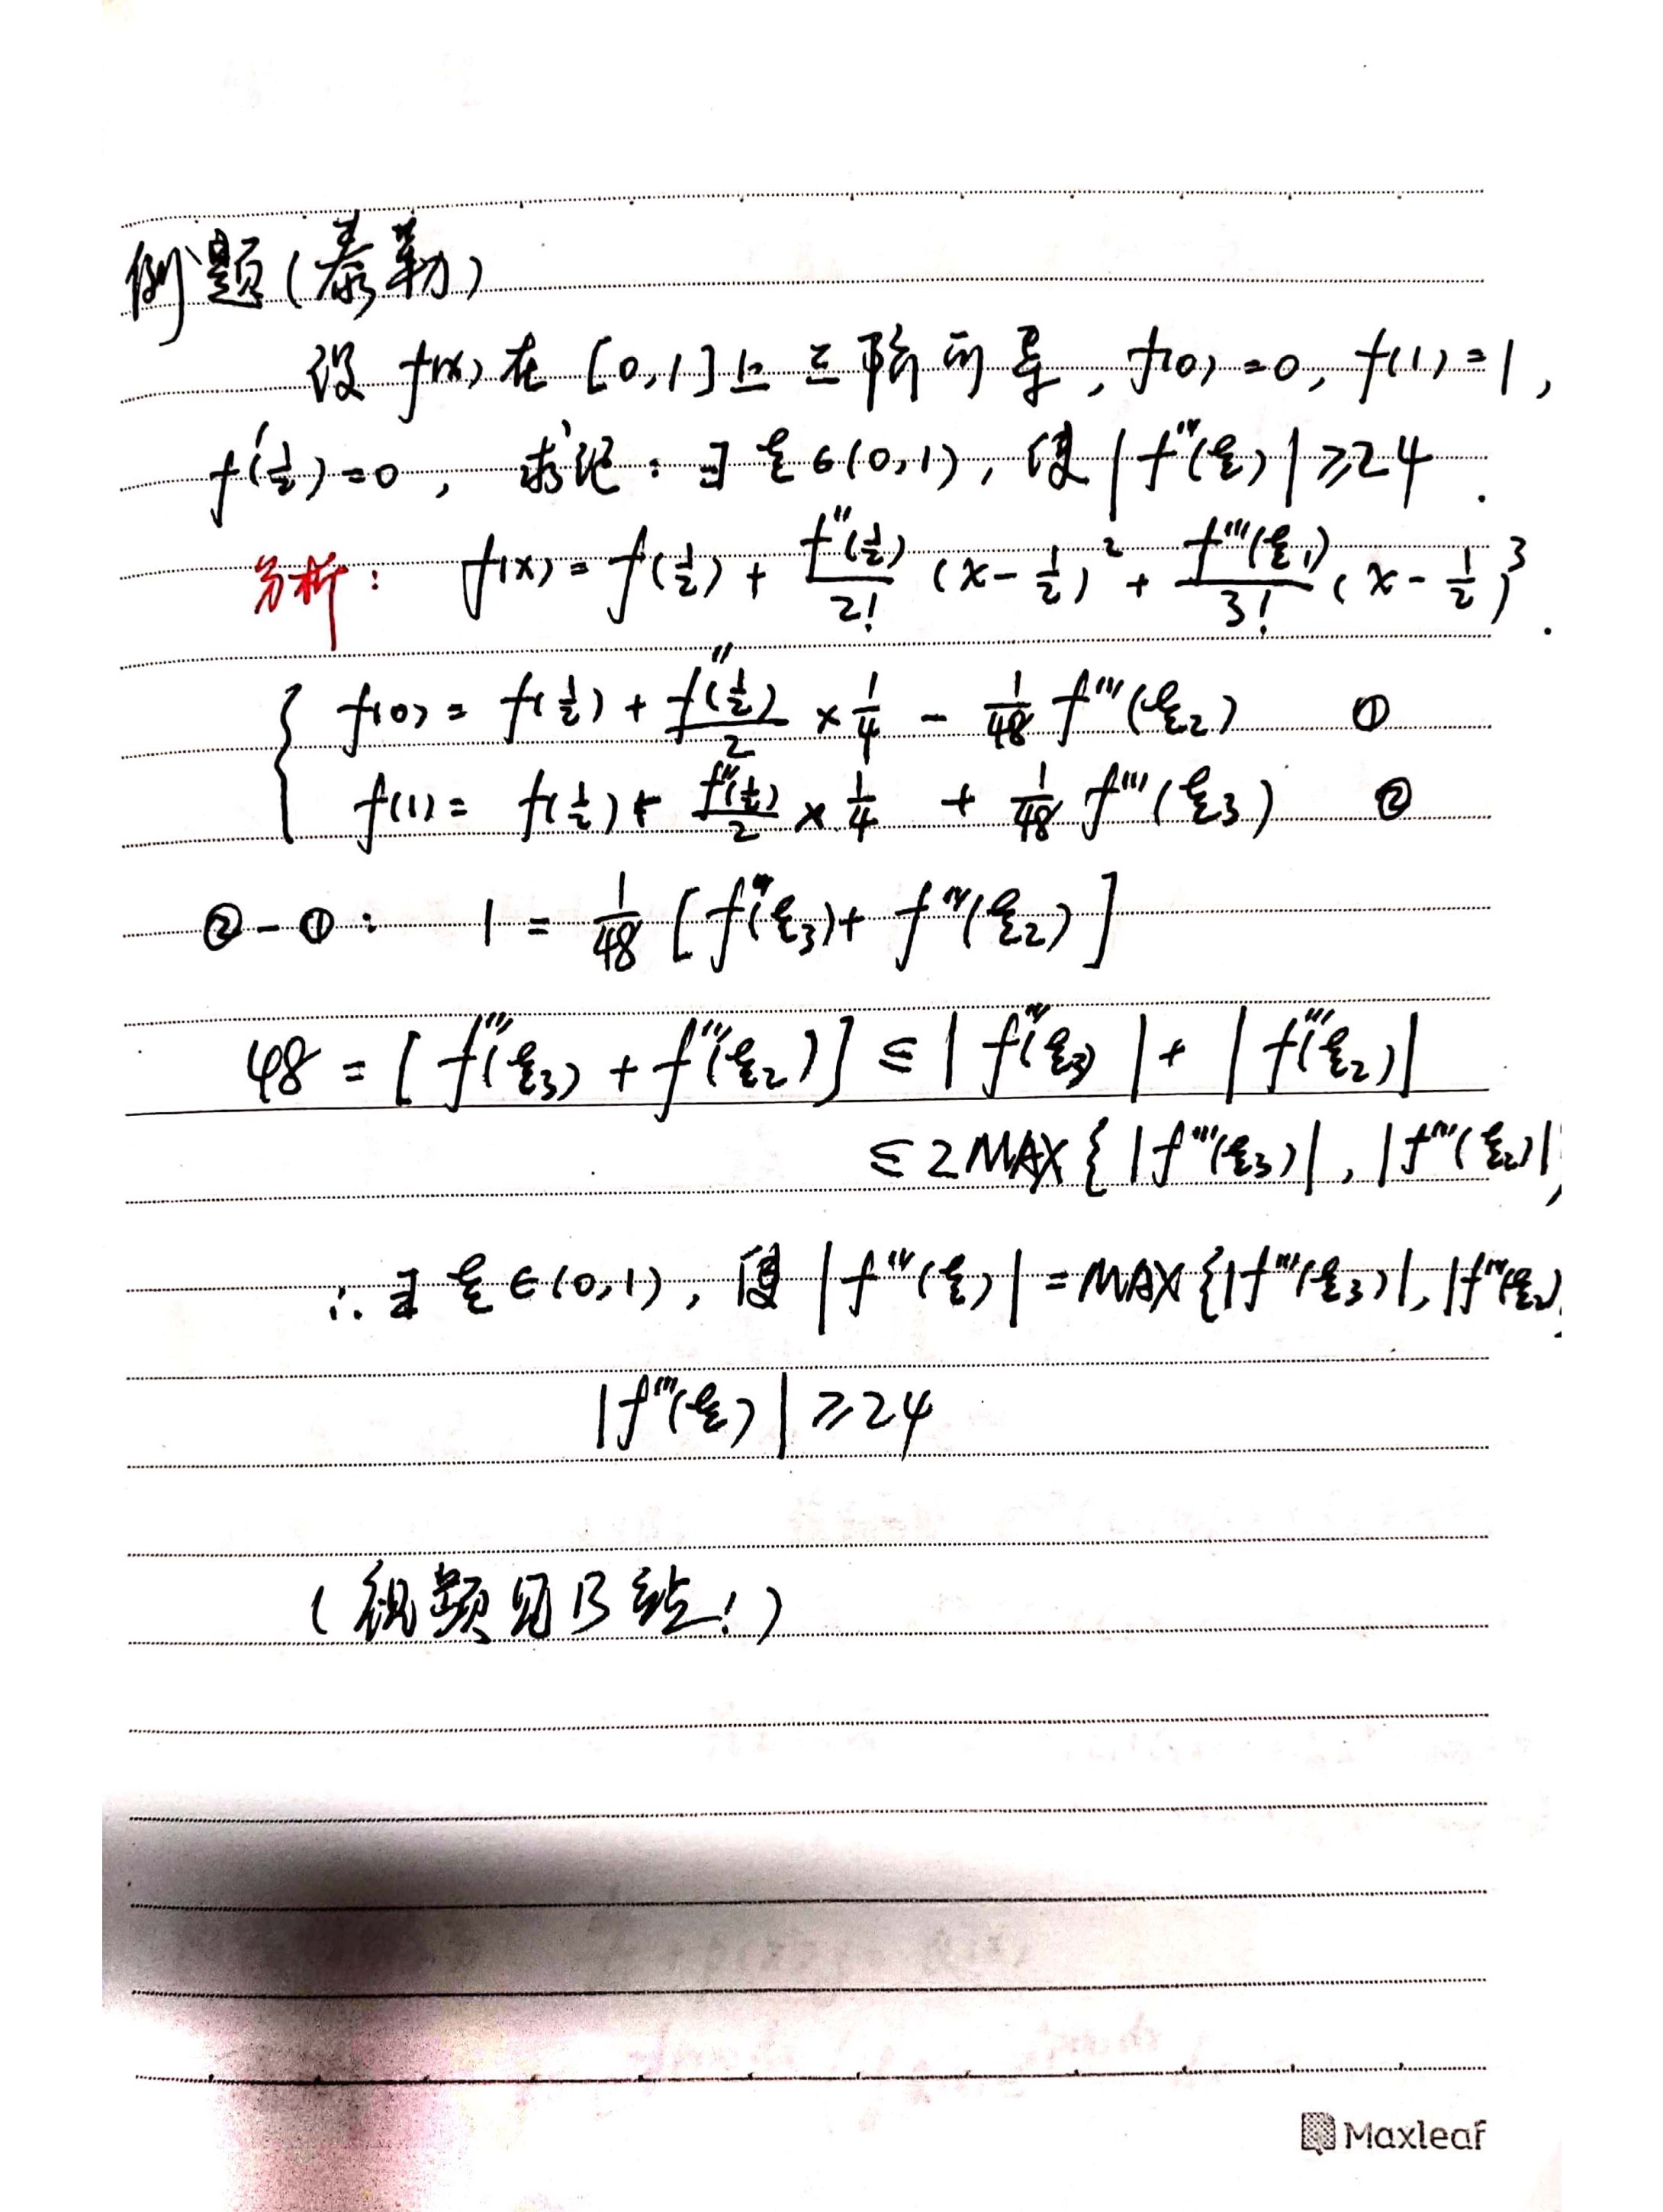 例题(泰勒)
设 f(x) 在 [0,1] 上三阶可导, f(0)=0, f(1)=1,
f'(1/2)=0, 求证: ∃ξ∈(0,1), 使|f'''(ξ)|≥24.
分析: f(x)=f(1/2)+f''(1/2)/2!(x-1/2)²+f'''(ξ₁)/3!(x-1/2)³.
f(0)=f(1/2)+f''(1/2)/2×1/4-1/48 f'''(ξ₂) ①
f(1)=f(1/2)+f''(1/2)/2×1/4+1/48 f'''(ξ₃) ②
②-①: 1=1/48[f'''(ξ₃)+f'''(ξ₂)]
48=[f'''(ξ₃)+f'''(ξ₂)]≤|f'''(ξ₃)|+|f'''(ξ₂)|
≤2MAX{|f'''(ξ₃)|,|f'''(ξ₂)|}
∴∃ξ∈(0,1), 使|f'''(ξ)|=MAX{|f'''(ξ₃)|,|f'''(ξ₂)
|f'''(ξ)|≥24
(视频见B站!)
Maxleaf